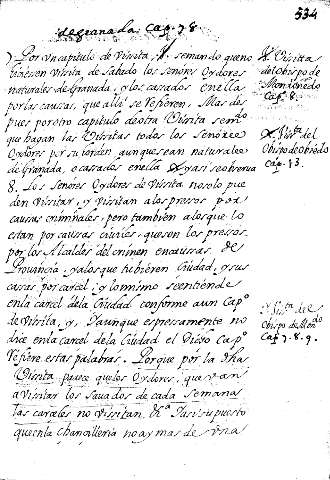 534
de granada Cap. 7 8
7 Por un capitulo de Vissita, X. semando que no
hiciesen Vissita de Sabado los Señores Oydores
naturales de Granada, y los cassados en ella
por las causas, que alli se refieren. Mas des
pues por otro capitulo de otra Visita se mdo
que hagan las Vissitas todos los Señores
Oydores por su torden aunque sean naturales
de Granada, o casados en ella X y asi se obserua
8. Los Señores Oydores de Vissita no solo pue
den Vissitar, y Visitan a los pressos por
causas criminales, pero tambien a los que lo
estan por causas ciuiles, que son los pressos
por los Alcaldes del crimen en caussas de
Prouincia, y a los que tubieren Ciudad, y sus
cassas por carcel; y lo mismo se entiende
en la carcel de la Ciudad conforme a un Capo
de Vissita, y, Y aunque espressamente no
dice en la carcel de la Ciudad el dicho Capo
refiere estas palabras. Porque por la dha
Vissita parece que los Oydores, que van
a Visitar los Sauados de cada Semana
las carceles no Vissitan &a Y assi supuesto
que en la Chancilleria no ay mas de una
X Vissita
del Obispo de
Mondoñedo
Cap. 8.
X Vista del
Obispo de Obiedo
Cap. 13.
Y Vista del
Obispo de Mondo
Cap. 7. 8. 9.